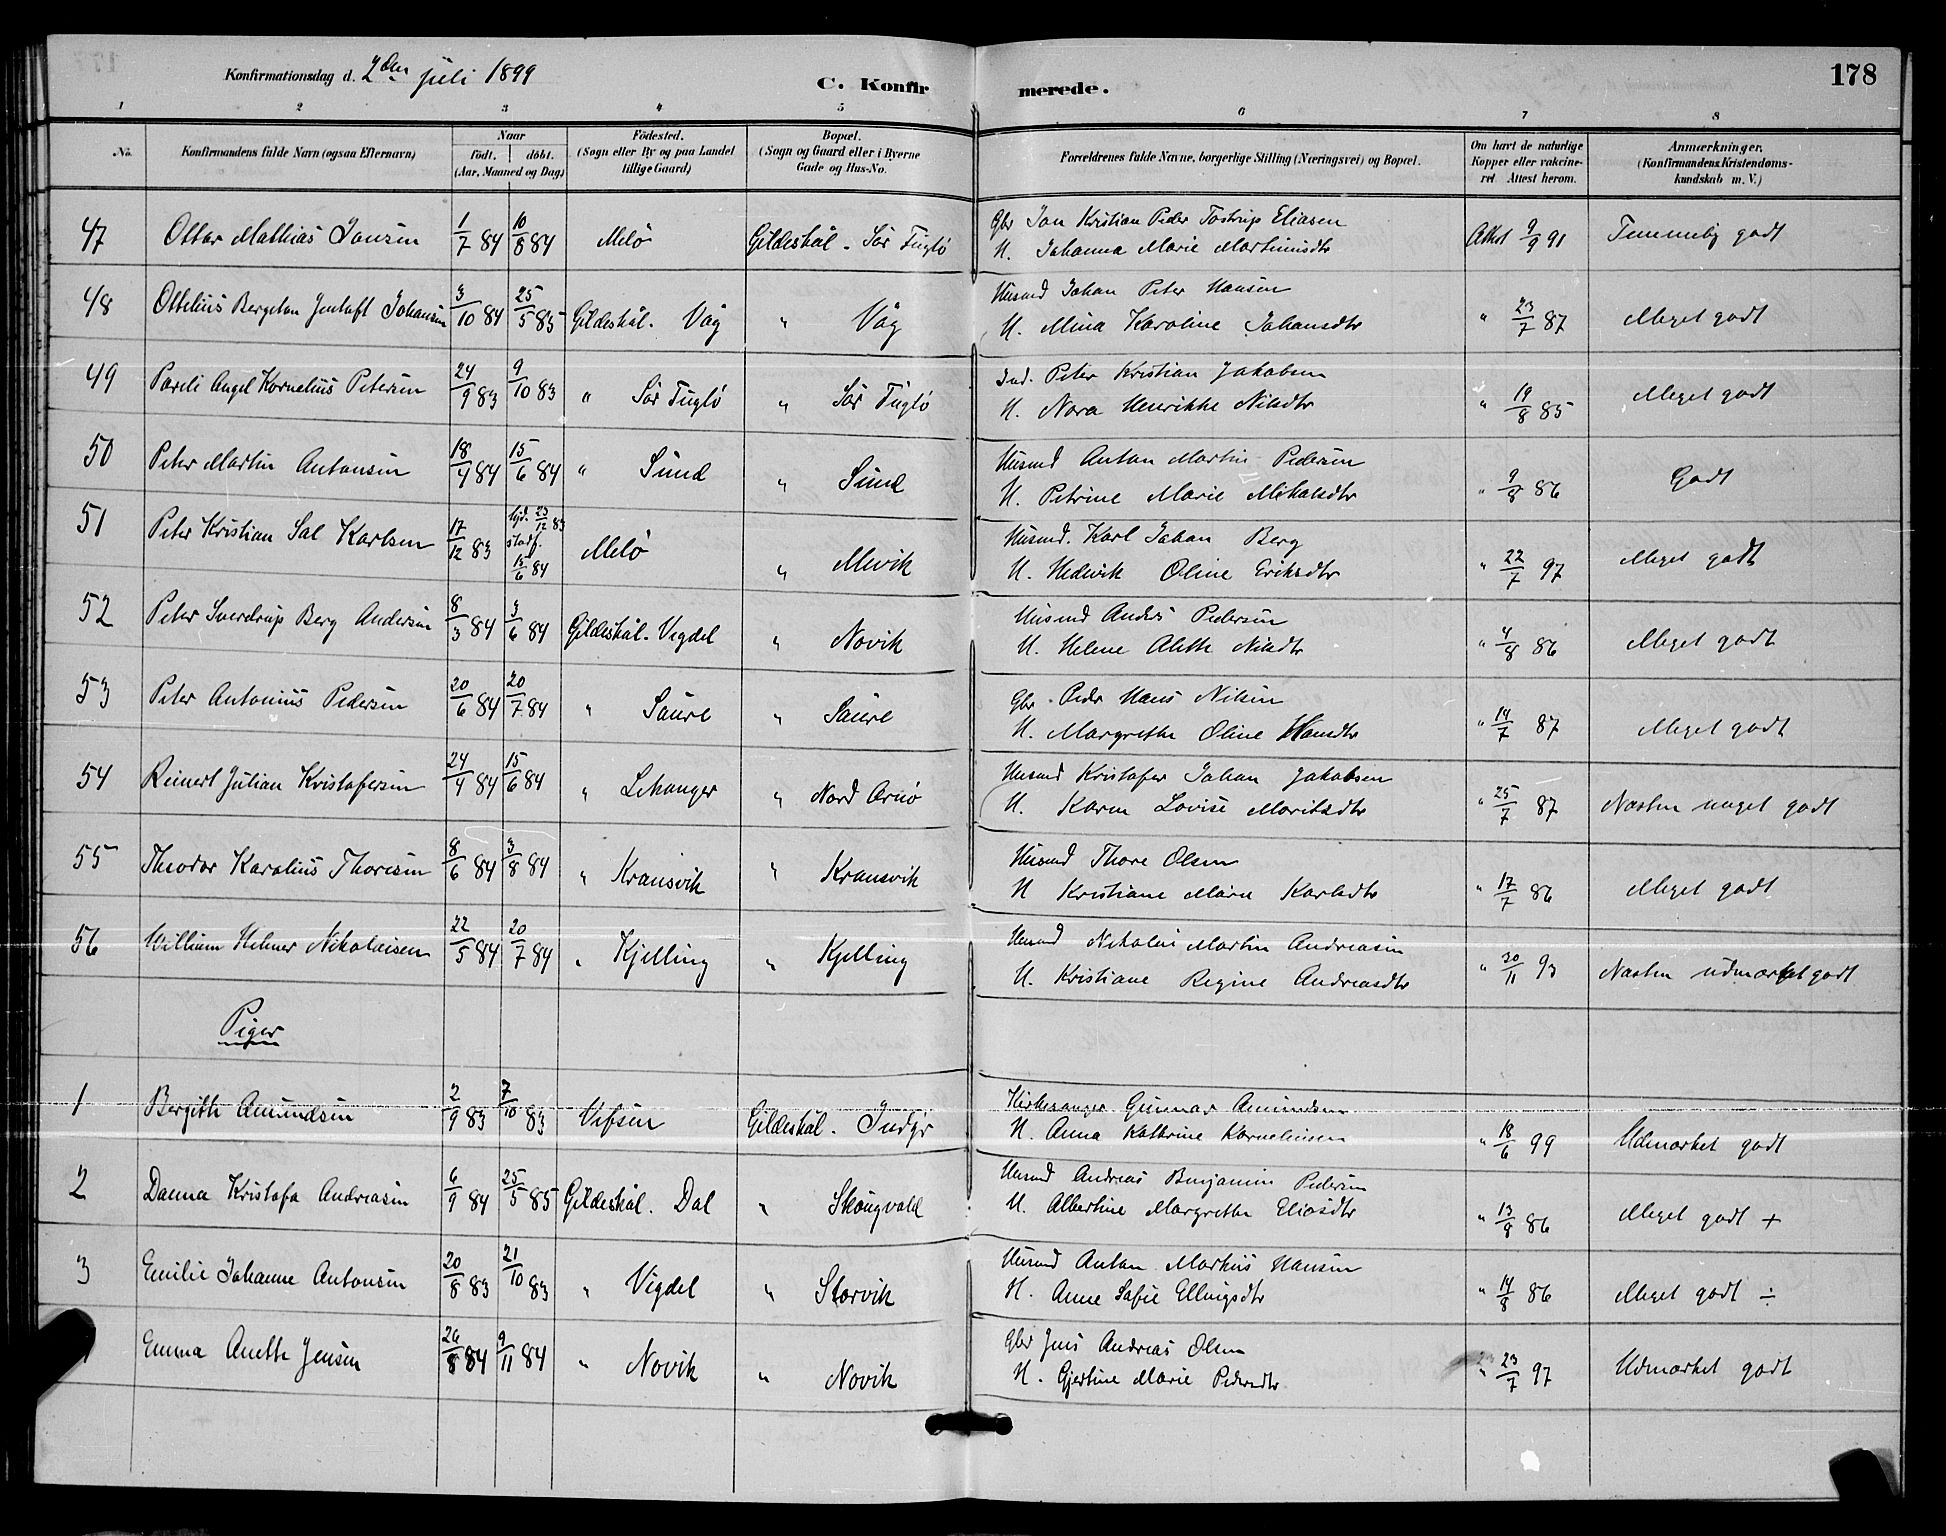 178
Konfirmationsdag d. 2den juli 1899
C. Konfirmerede.
1 2 3 4 5 6 7 8
No. Konfirmandens fulde Navn (ogsaa Efternavn) Naar födt. döbt. (Aar, Maaned og Dag) Födested. (Sogn eller By og paa Landet tillige Gaard) Bopæl. (Sogn og Gaard eller i Byerne Gade og Hus-No. Forældrenes fulde Navne, borgerlige Stilling (Næringsvei) og Bopæl. Om havt de naturlige Kopper eller vakcineret Attest herom. Anmærkninger. (Konfirmandens Kristendomskundskab m. V.)
47 Ottar Mathias Jansen 1/7 84 10/8 84 Melö Gildeskål. Sör Fuglö Gbr Jan Kristian Peder Tostrup Eliasen
H. Johanna Marie Martinusdtr Attest 9/9 91 Temmelig godt
48 Ottelius Bergeton Jentoft Johansen 3/10 84 25/5 85 Gildeskål. Våg " Våg Husmd Johan Peter Hansen
H. Mina Karoline Johansdtr " 23/7 87 Meget godt
49 Pareli Angel Kornelius Petersen 24/9 83 9/10 83 " Sör Fuglö " Sör Fuglö Ind. Peter Kristian Jakobsen
H. Nora Henrikke Nilsdtr " 19/8 85 Meget godt
50 Peter Martin Antonsen 18/4 84 15/6 84 " Sund " Sund Husmd Anton Martin Pedersen
H. Petrine Marie Mikalsdtr " 9/8 86 Godt
51 Peter Kristian Sal Karlsen 17/12 83 hjd. 23/12 83 stadf. 15/6 84 Melö " Mevik Husmd. Karl Johan Berg
H. Hedevik Oline Eriksdtr " 22/7 97 Meget godt
52 Peter Sverdrup Berg Andersen 8/3 84 3/6 84 Gildeskål. Vegdel " Novik Husmd Anders Pedersen
H. Helene Aleth Nilsdtr " 4/8 86 Meget godt
53 Peter Antonius Pedersen 20/6 84 20/7 84 " Saure " Saure Gbr. Peder Hans Nilsen
H. Margrethe Oline Hansdtr " 14/7 87 Meget godt
54 Reinert Julian Kristofersen 24/4 84 15/6 84 " Lekanger " Nord Arnö Husmd Kristofer Johan Jakobsen
H. Karen Lovise Moritsdtr " 25/7 87 Næsten meget godt
55 Theodor Karolius Thoresen 8/6 84 3/8 84 " Kransvik " Kransvik Husmd Thore Olsen
H Kristiane Marie Karlsdtr " 17/7 86 Meget godt
56 William Helmer Nikolaisen 22/5 84 20/7 84 " Kjelling " Kjelling Husmd Nikolai Martin Andreasen
H. Kristiane Regine Andreasdtr " 30/11 93 Næsten udmærket godt
Piger
1 Bergith Amundsen 2/9 83 7/10 83 Vefsen Gildeskål. Indyr Kirkesanger Gunnar Amundsen
H. Anna Kathrine Korneliusen " 18/6 99 Udmærket godt
2 Danna Kristofa Andreasen 6/9 84 25/5 85 Gildeskål. Dal " Skougvold Husmd Andreas Benjamin Pedersen
H. Albertine Margrethe Eliasdtr " 13/8 86 Meget godt +
3 Emilie Johanne Antonsen 20/8 83 21/10 83 " Vigdel " Storvik Husmd Anton Markus Hansen
H. Anne Sofie Ellingsdtr " 14/8 86 Meget godt ÷
Emma Anette Jensen 26/8 84 9/11 84 " Novik " Novik Gbr Jens Andreas Olsen
H. Gjertine Marie Pedersdtr " 23/7 97 Udmærket godt